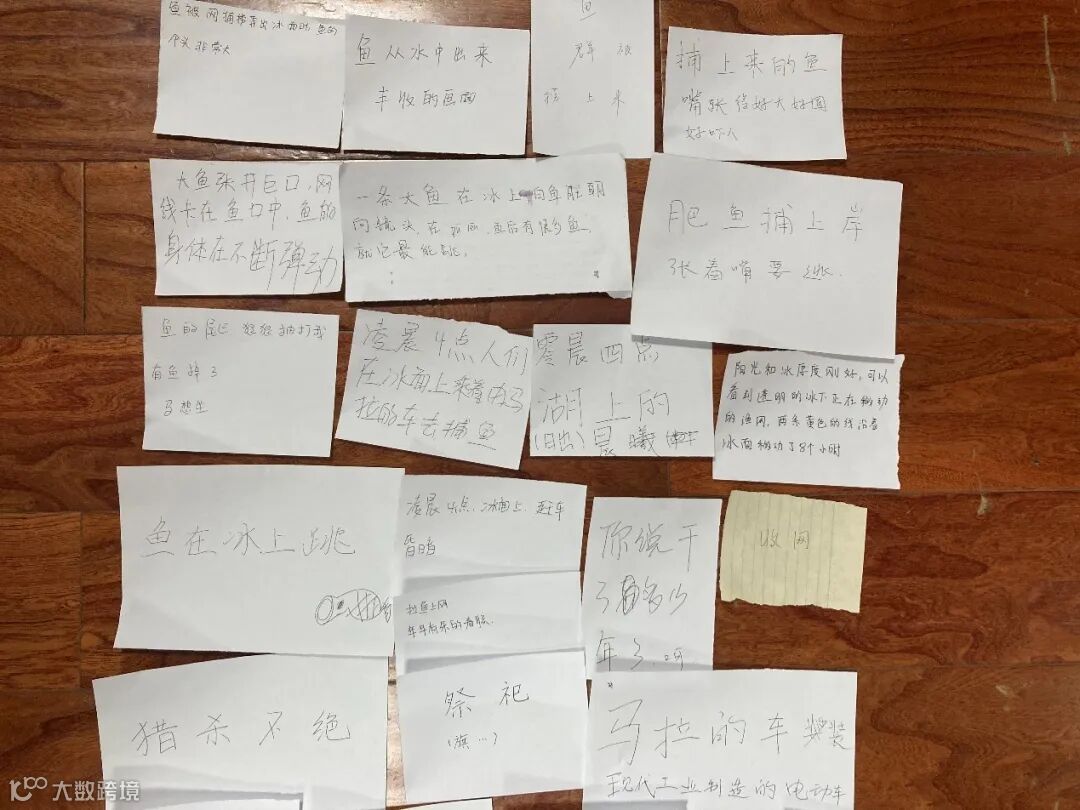 鱼被网捕捞弄出冰面时,鱼的
个头非常大
鱼从冰中出来
丰收的画面
鱼
群被
捞上来
捕上来的鱼
嘴张得好大好圆
好吓人
大鱼张开巨口,网
线卡在鱼口中,鱼的
身体在不断弹动
一条大鱼在冰上
向镜头
肥鱼捕上岸
张着嘴要逃.
鱼的尾巴狠狠抽打我
有鱼掉了
凌晨4点人们
在冰面上乘着由马
拉的车去捕鱼
晨四点
湖上的
(日出)晨曦
阳光和冰厚度刚好,可以
看到透明的冰下正在移动
的渔网,两条黄色的线沿着
冰面移动了8个小时
鱼在冰上跳
凌晨4点,冰面上,赶车
拉鱼上网
年年有
了多少
年了,呵
收网
猎杀不绝
祭祀
(旗…)
马拉的车 装
现代工业制造的电动车
大数跨境